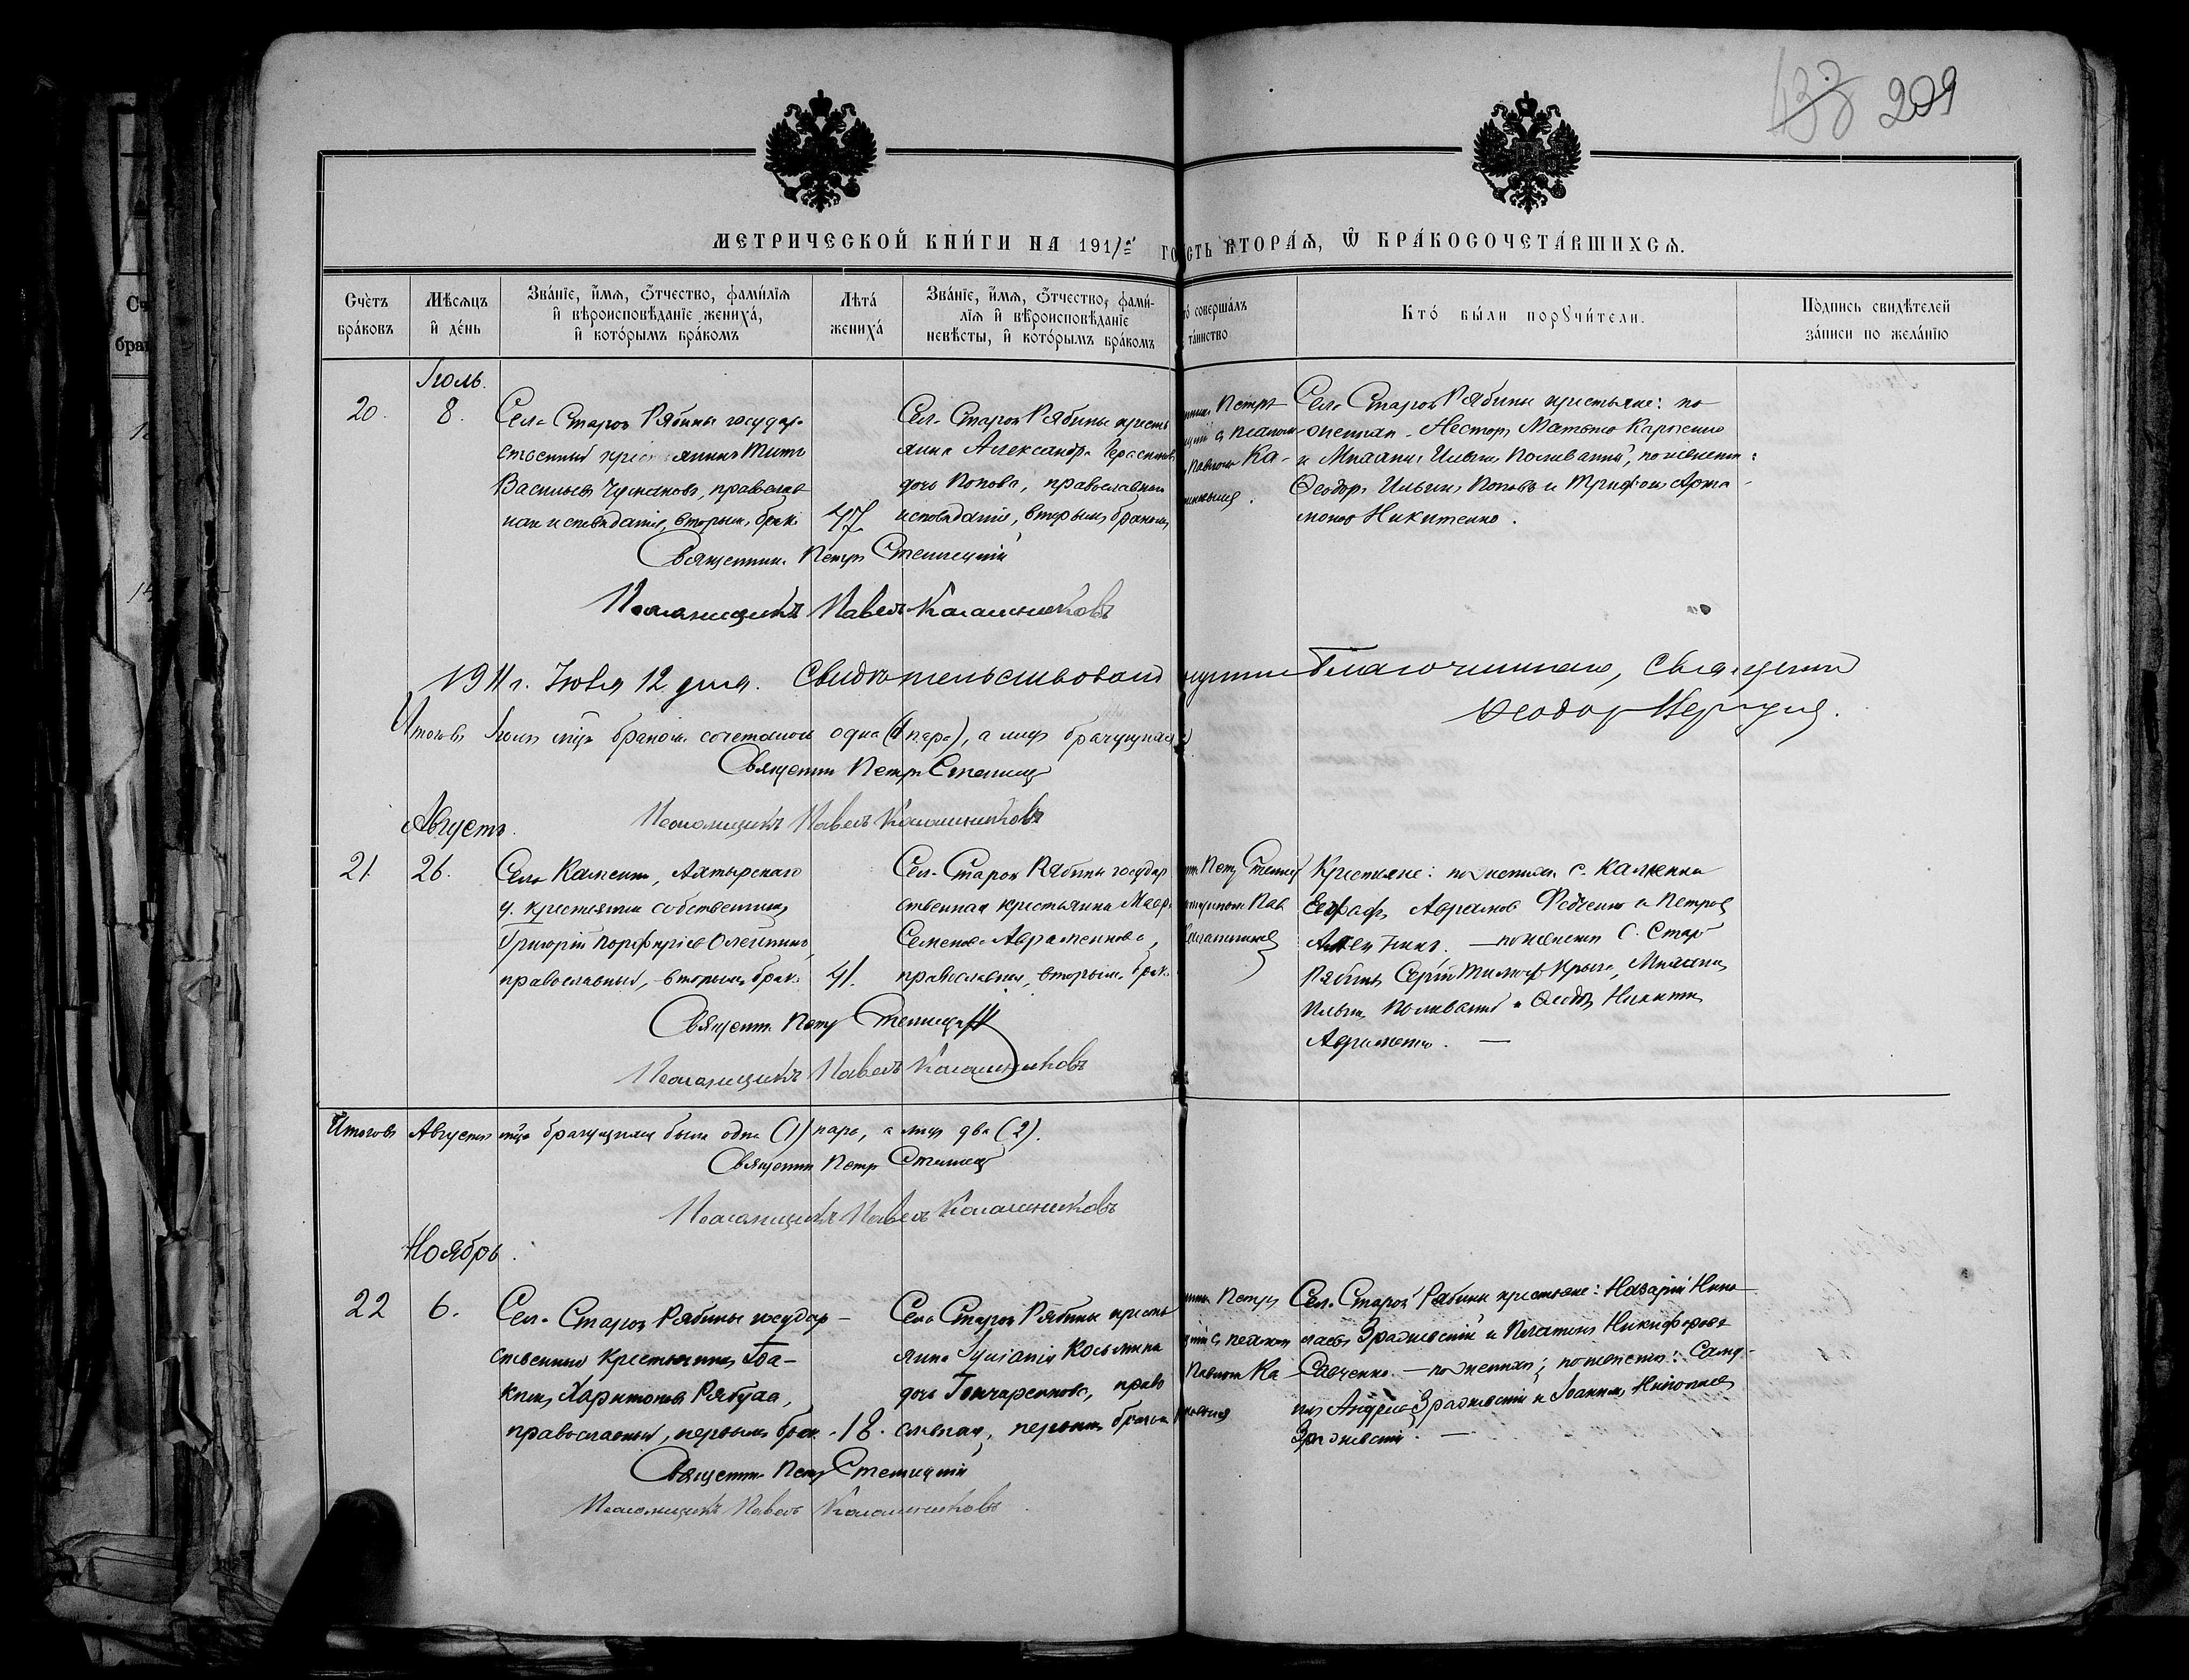 133 209
МЕТРИЧЕСКОЙ КНИ́ГИ НА 1911 ГО
СТЬ ВТОРА́Ѧ, Ѿ БРА́КОСОЧЕТА́ВШИХСѦ.
Сче́тъ бра́ковъ
Мѣ́сѧцъ и҆ де́нь
Зва́нїе, и҆́мѧ, ѻ҆́тчество, фами́лїѧ
и҆ вѣроисповѣ́данїе жениха́,
и҆ кото́рымъ бра́комъ
Лѣта́ жениха́
Зва́нїе, и҆́мѧ, ѻ҆́тчество, фами́-
лїѧ и҆ вѣроисповѣ́данїе
невѣ́сты, и҆ кото́рымъ бра́комъ
то́ соверша́лъ
та́инство
Кто́ бы́ли порꙋчи́тели.
По́дпись свидѣ́телей
за́писи по жела́нїю
Іюль.
20. 8.
Села Старой Рябины государ-
ственный крестьянинъ Титъ
Васильевъ Чумаковъ, православ
наго исповѣданія, вторымъ брак.
47
Села Старой Рябины кресть
янина Александра Герасимова
дочь Попова, православнаго
исповѣданія, вторымъ бракомъ
Петръ
с псалом-
Павломъ Ка-
Села Старой Рябины крестьяне: по
женихѣ - Несторъ Матвѣевъ Карпенко
и Михаилъ Ильинъ Поливаный, по невѣстѣ:
Ѳеодоръ Ильинъ Поповъ и Трифонъ Арта-
моновъ Никитенко.
Священникъ Петръ Стеллецкій
Псаломщикъ Павелъ Калашниковъ
1911 г. Іюля 12 дня. Свидѣтельствовалъ
Благочиннаго, Священникъ
Ѳеодоръ
Итого въ Іюлѣ мцѣ бракомъ сочеталось одна (1 пара), а лицъ брачущихся
Священник Петръ Стеллецкій
Псаломщикъ Павелъ Калашниковъ
Августъ.
21. 26.
Села Каменки, Ахтырскаго
у. крестьянинъ собственникъ
Григорій Порфиріевъ Олейникъ,
православный, вторымъ брак.
41.
Села Старой Рябины государ
ственная крестьянка Мавра
Семенова Авраменкова,
православная, вторымъ брак.
Петръ Стеллецкій
Пав
Калашников
Крестьяне: по женихѣ с. Каменки
Евграфъ Аврамовъ Федченко и Петръ
— по невѣстѣ с. Стар
Рябины Сергій Тимоф. Крыга, Михаилъ
Ильинъ Поливаный и Ѳеодоръ Никитинъ
Авраменко. —
Священник Петръ Стеллецкій
Псаломщикъ Павелъ Калашниковъ
Итого въ Августѣ мцѣ брачущихся была одна (1) пара, а лицъ два (2).
Священник Петръ Стеллецкій
Псаломщикъ Павелъ Калашниковъ
Ноябрь.
22 6.
Села Старой Рябины государ-
ственный крестьянинъ Іоа-
кимъ Харитоновъ Рябуха,
православный, первымъ брак.
18.
Села Старой Рябины кресть
янина Іуліанія Косьмина
дочь Гончаренкова, право
славная, первымъ бракомъ
Петръ
с псалом
Павломъ Ка
Села Старой Рябины крестьяне: Назарій Нико-
лаевъ Зражевскій и Платонъ Никифоровъ
Савченко — по женихѣ; по невѣстѣ: Саму-
илъ Андреевъ Зражевскій и Іоаннъ Николаевъ
Зражевскій. —
Священник Петръ Стеллецкій
Псаломщикъ Павелъ Калашниковъ